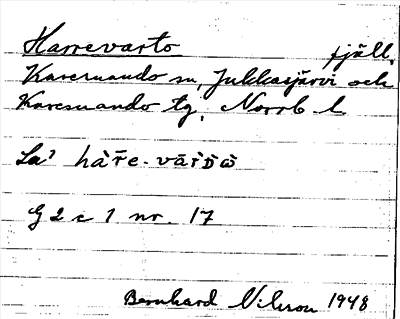 Harrevarto fjäll,
Karesuando sn, Jukkasjärvi och
Karesuando tg, Norrb l
La' hàr̄e-vār̀ᴅὼ
G 2 c 1 nr. 17
Bernhard Nilsson 1948